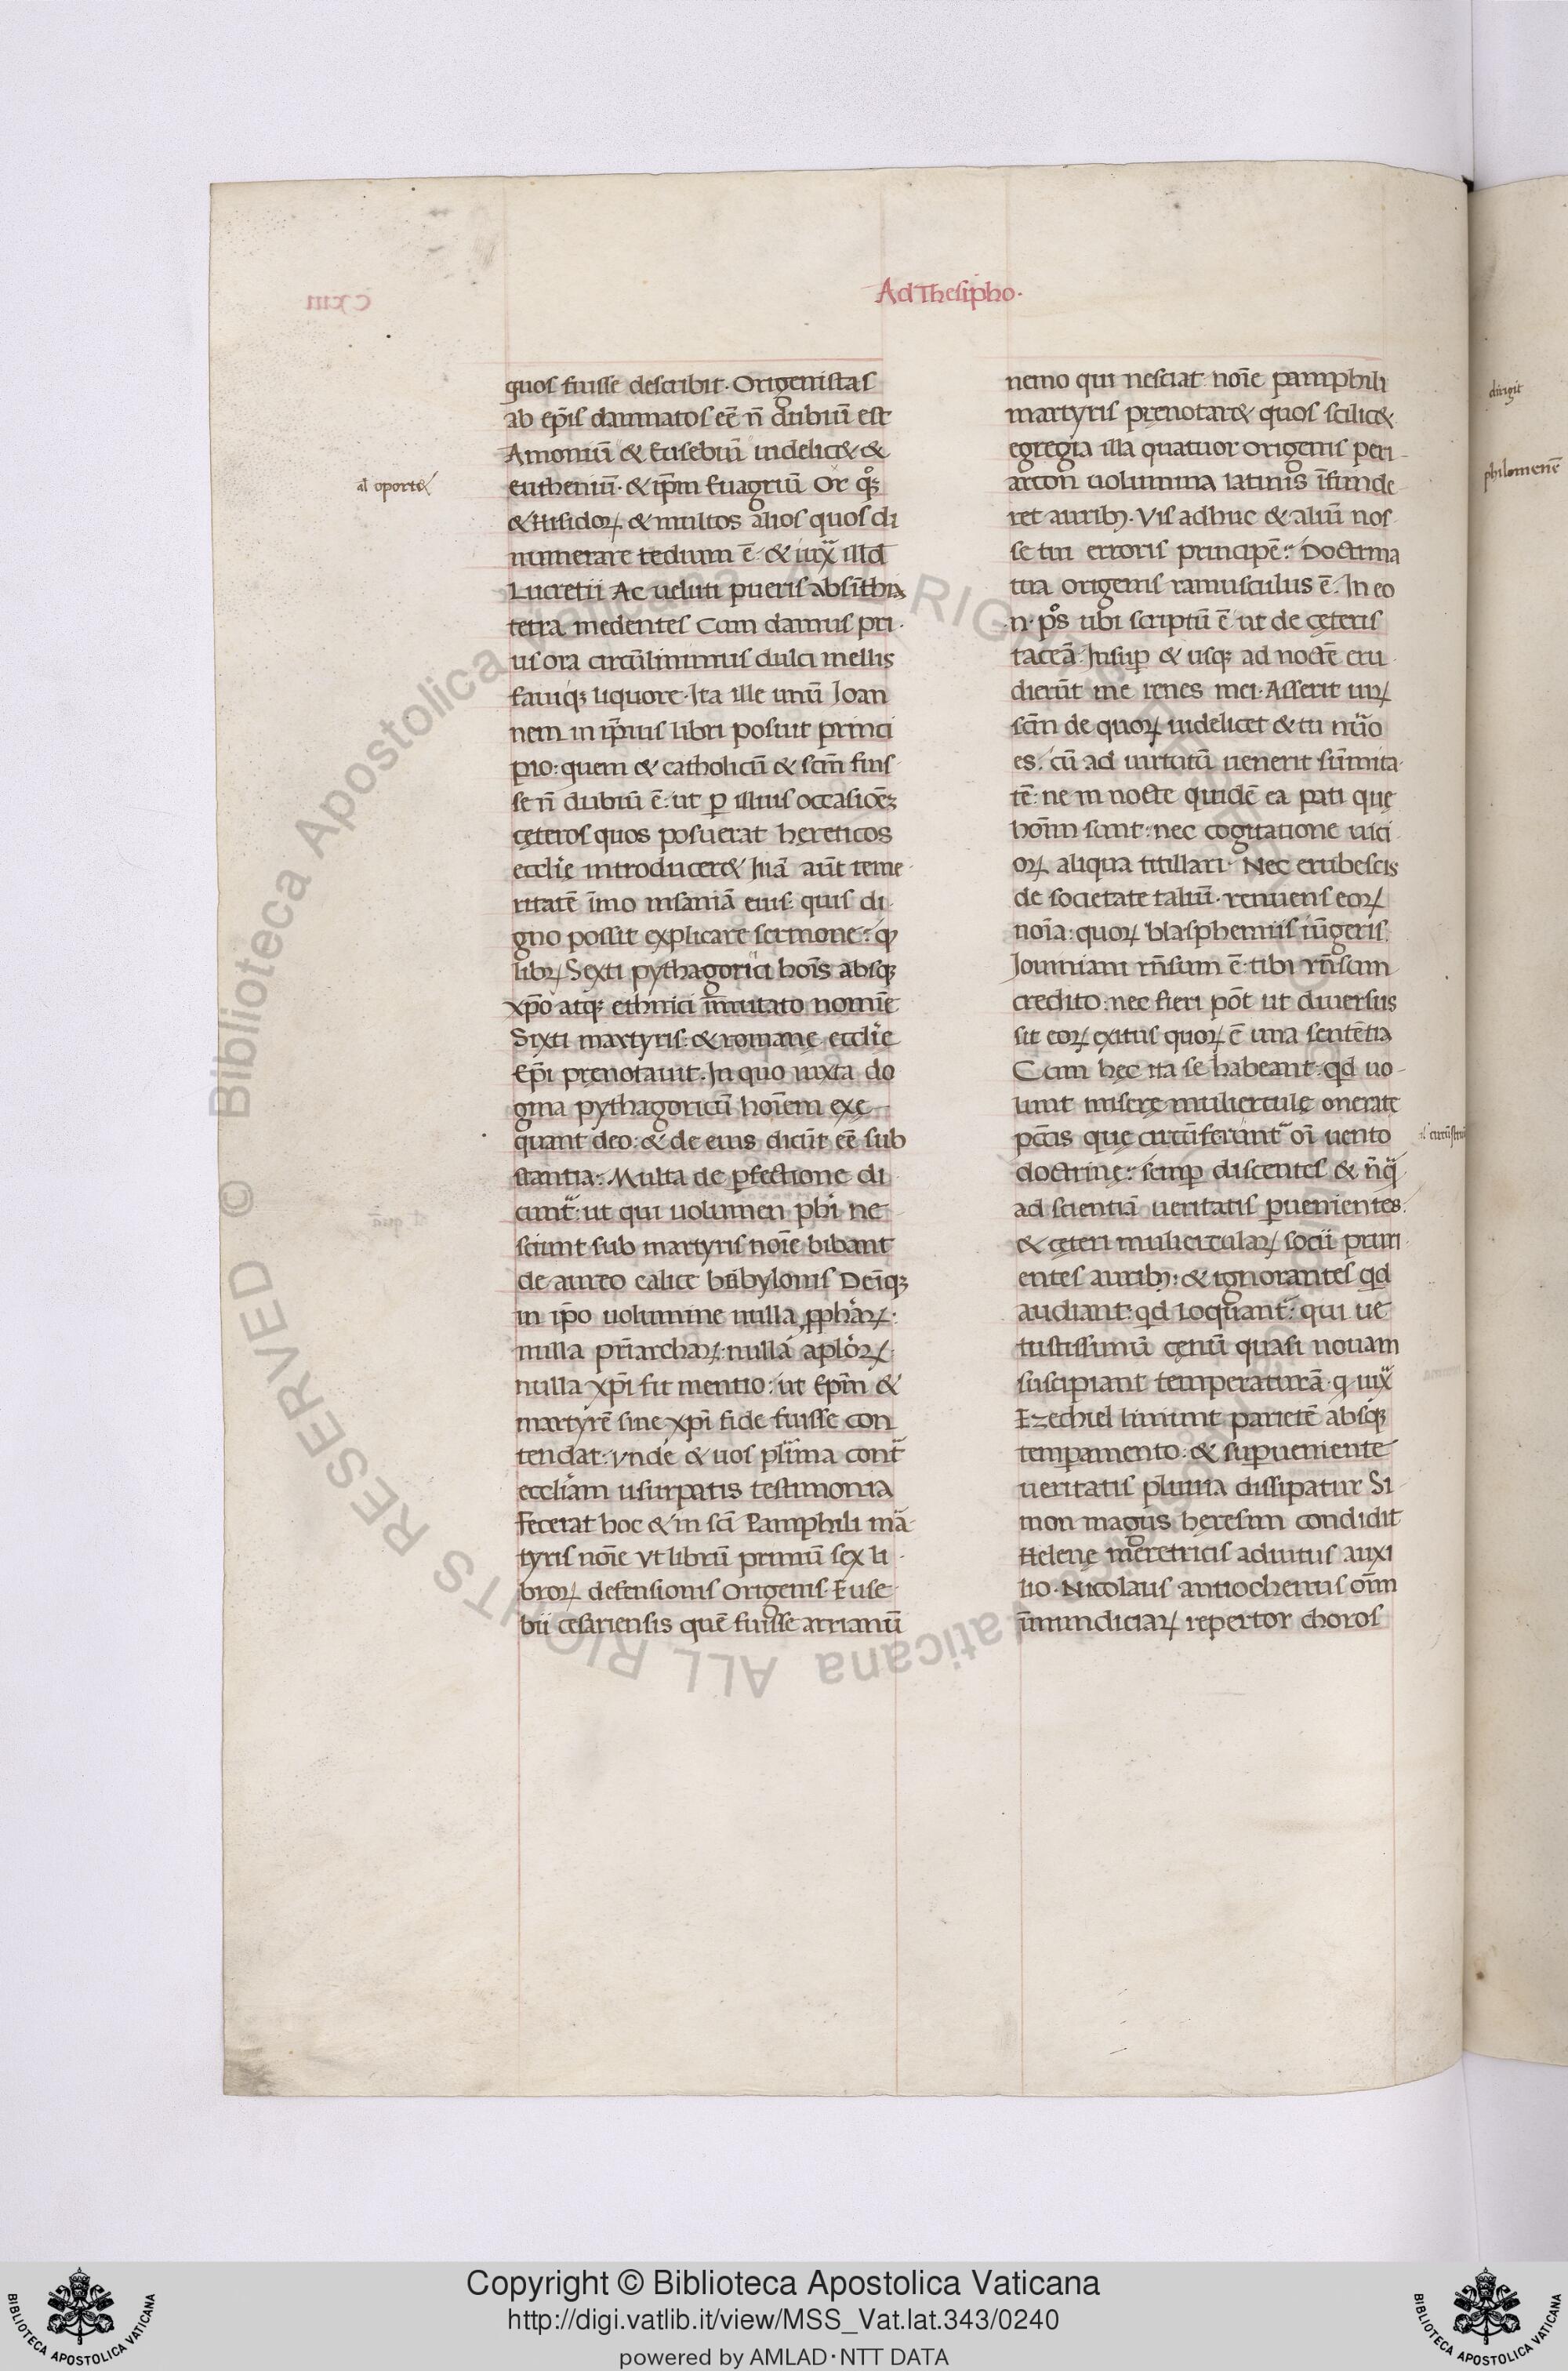 Ad Thesipho.
quos fuisse describit. Origenistas
ab ep̄is damnatos eē n̄ dubiū est
Amoniū & Eusebiū uidelic& &
al oport&
eutheniū. & ip̄m Euagriū Or q̊ꝫ
& Hisidoꝝ & multos alios quos di
numerare tedium ē. & iuxͣ illd̄
Lucretii Ac ueluti pueris absīthia
tetra medentes Cum damus pri
us ora circūlinimus dulci mellis
fauiqꝫ liquore. Ita ille unū Joan
nem in ip̄ius libri posuit princi
pio: quem & catholicū & scm̄ fuis
se n̄ dubiū ē: ut p̲ illius occasiōeꝫ
cęteros quos posuerat hereticos
eccli̇e introducer& hiā aūt teme
ritatē īmo insaniā eius: quis di
gno possit explicare sermone: qͩ
libꝝ Sexti pythagorici hoīs absqꝫ
xp̄o atqꝫ ethnici īmutato nomīe
Sixti martyris: & romanę eccli̇e
Ep̄i prenotauit. In quo iuxta do
gma pythagoricū hoīem exę
quant deo: & de eius dicūt eē sub
stantia: Multa de p̲fectione di
cunt̄: ut qui uolumen phi̇ ne
sciunt sub martyris noīe bibant
de aureo calice babylonis Deīqꝫ
in ip̄o uolumine nulla ꝓphāꝝ:
nulla pr̄iarchaꝝ: nulla aplōꝝ
nulla xp̄i fit mentio: ut Ep̄m &
martyrē sine xp̄i fide fuisse con
tendat: vnde & uos plīma contͣ
eccli̇am usurpatis testimonia
Fecerat hoc & in sci̇ Pamphili mā
tyris noīe vt librū primū sex li
broꝝ defensionis Origenis. Euse
bii cesariensis quē fuisse arrianū
nemo qui nesciat noīe pamphili
martyris prenotar& quos scilic&
egregia illa quatuor origenis peri
arcon uolumina latinis īfunde
ret aurib;. Vis adhuc & aliū nos
se tui erroris principē: Doctrina
tua origenis ramusculus ē. In eo
.n. pͦs ubi scriptū ē ut de cęteris
taceā. Insup̲ & usqꝫ ad noctē eru
dierūt me renes mei. Asserit uiꝝ
scm̄ de quoꝝ uidelicet & tu nūo
es. cū ad uirtutū uenerit sūmita
tē: ne in nocte quidē ea pati quę
hoīm sunt: nec cogitatione uici
oꝝ aliqua titillari. Nec erubescis
de societate taliū. renuens eoꝝ
noīa: quoꝝ blasphemiis iūgeris.
Jouiniani rn̄sum ē: tibi rn̄sum
credito. nec fieri pōt ut diuersus
sit eoꝝ exitus quoꝝ ē una sentētia
Cum hęc ita se habeant: qd̄ uo
lunt miserę mulierculę oneratę
pcc̄is quę circūferūnt̄ oī uento
al' circūferū
doctrinę: semp̲ discentes & n̄qͣ
ad scientiā ueritatis p̲uenientes.
& cęteri muliercularꝝ socii pruri
entes aurib;: & ignorantes qd̄
audiant: qd̄ loquant̄: qui ue
tustissimū cęnū quasi nouam
suscipiant temperaturā. q iuxͣ
Ezechiel liniunt parietē absqꝫ
temp̲amento. & sup̲ueniente
ueritatis pluuia dissipatur Si
mon magus heresim condidit
Helenę meretricis adiutus auxi
lio. Nicolaus antiochenus om̄
īmundiciaꝝ repertor choros
dirigit
philomenē
Copyright © Biblioteca Apostolica Vaticana
http://digi.vatlib.it/view/MSS_Vat.lat.343/0240
powered by AMLAD·NTT DATA
BIBLIOTECA APOSTOLICA VATICANA
BIBLIOTECA APOSTOLICA VATICANA
© Biblioteca Apostolica Vaticana ALL RIGHTS RESERVED